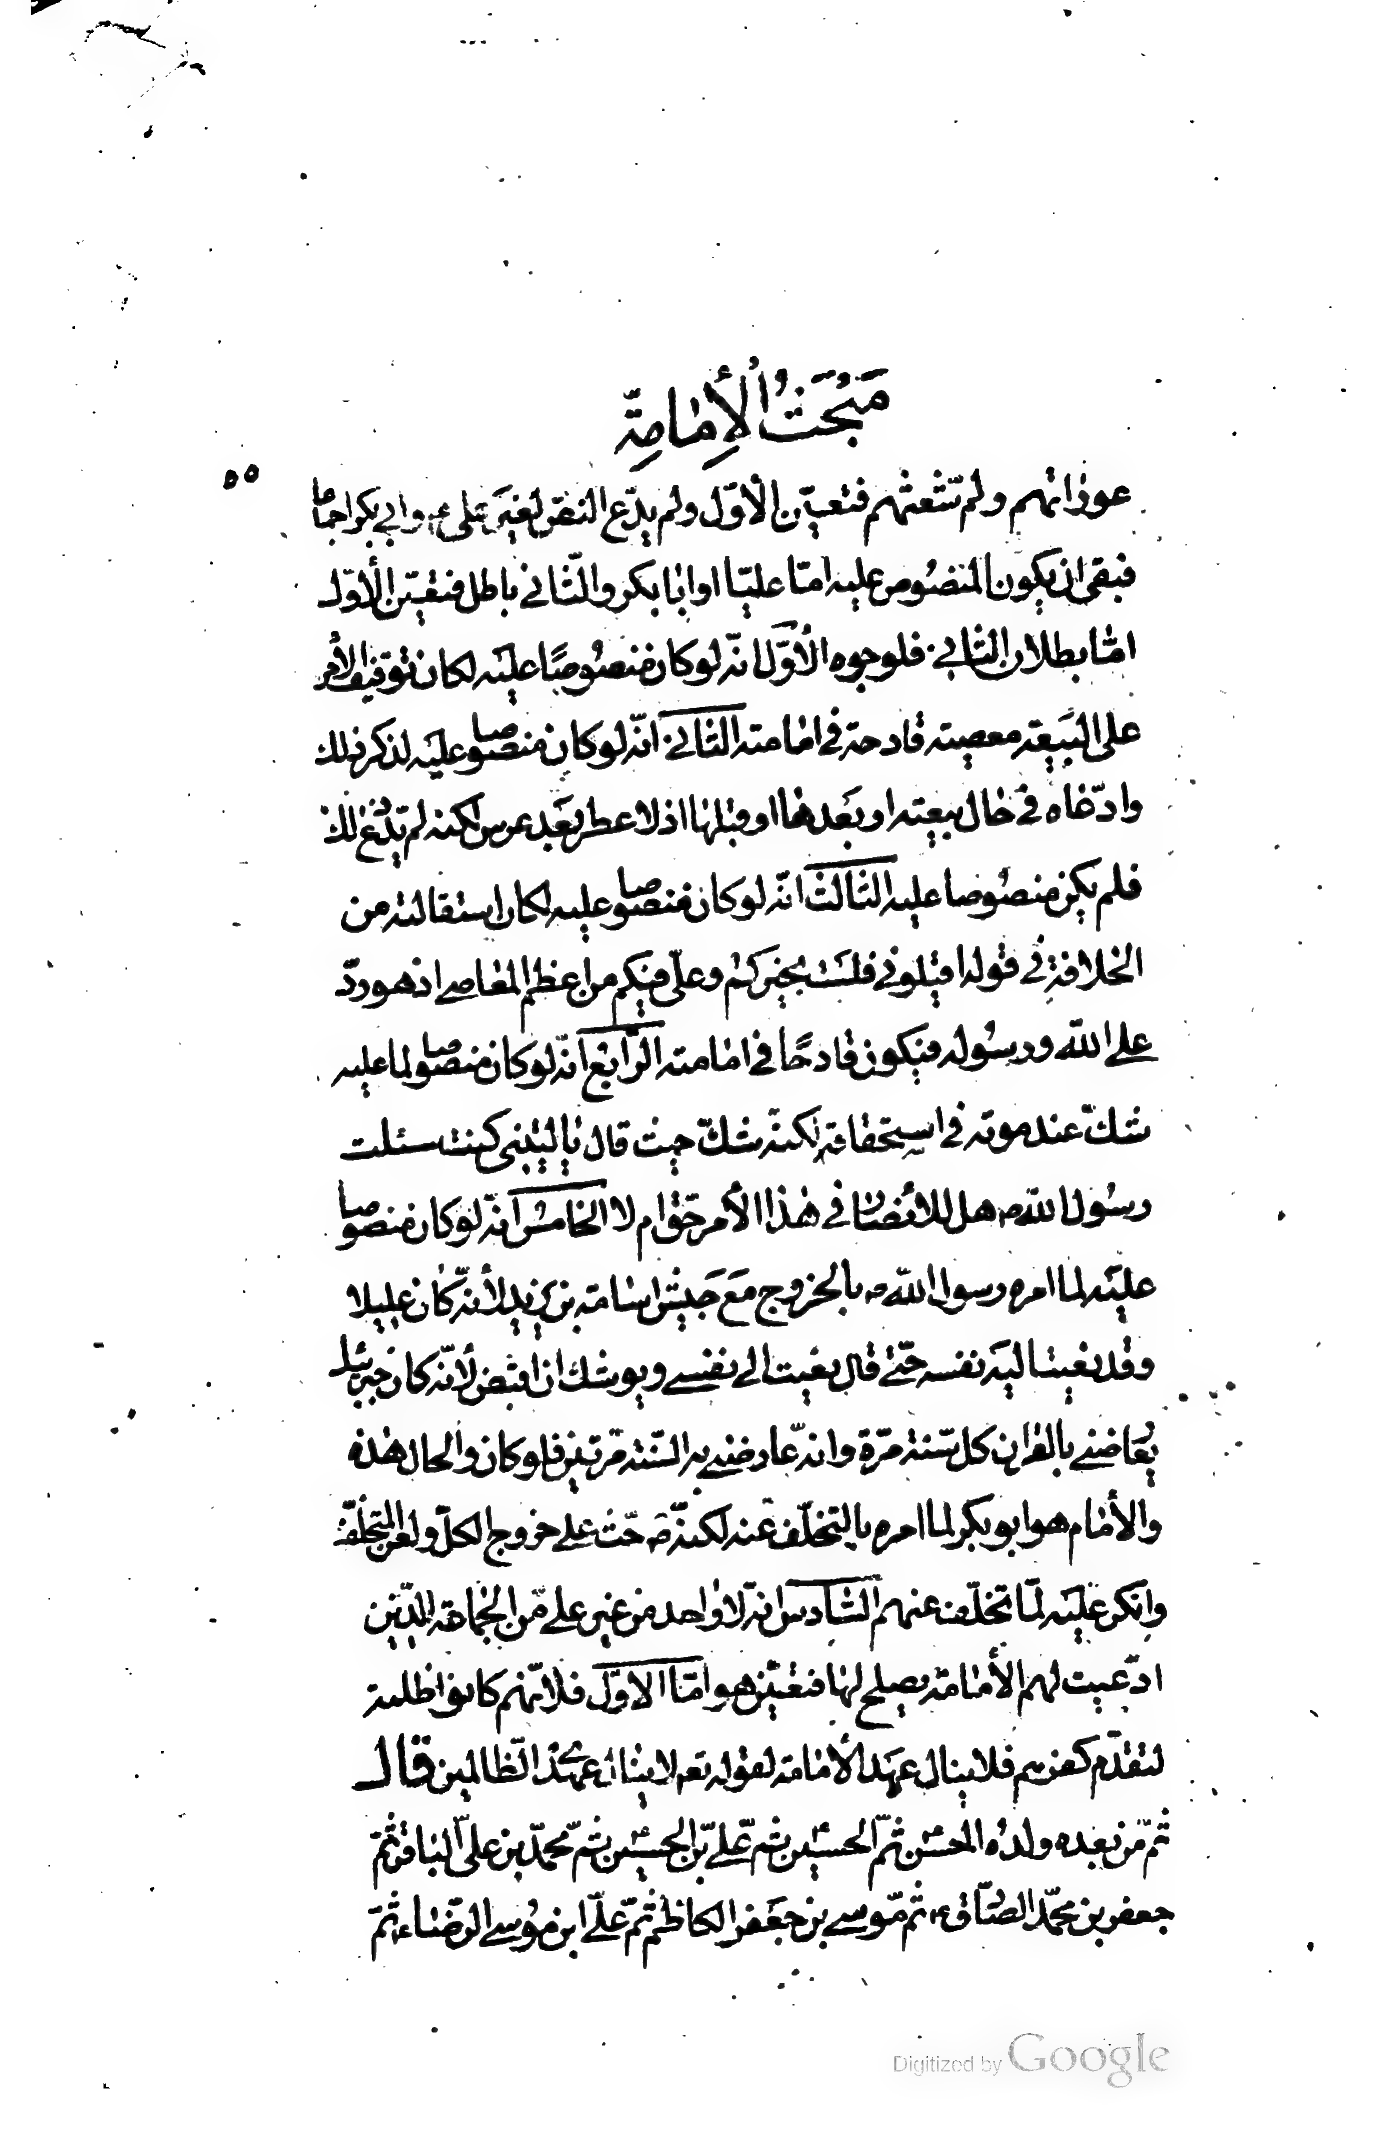 مَبْحَثُ الْأِمٰامَةِ
٥٥
عوراتهم ولم تشعثهم فتعيّن الأوّل ولم يدّع النصّ لغير علي ع وابي بكر اجماعا
فبقى ان يكون المنصوص عليه امّا عليّا او ابا بكر والثاني باطل فتعيّن الأوّل
امّا بطلان الثاني فلوجوه الأوّل انّه لو كان منصوصًا عليه لكان توقيف الأمر
على البيعة معصيته قادحة في امامته الثاني انّه لو كان منصوصا عليه لذكر ذلك
وادّعاه في حال بيعته او بعدها او قبلها اذ لا عطر بعد عرس لكنه لم يدّع ذلك
فلم يكن منصوصا عليه الثالث انّه لو كان منصوصا عليه لكان استقالته من
الخلافة في قوله اقيلوني فلست بخيركم وعليّ فيكم من اعظم المعاصي اذ هو ردّ
على اللّه ورسوله فيكون قادحًا في امامته الرّابع انّه لو كان منصوصا عليه لما
شكّ عند موته في استحقاقه لكنه شكّ حيث قال يا ليتني كنت سئلت
رسول اللّه ص هل للانصار في هذا الأمر حقّ ام لا الخامس انّه لو كان منصوصا
عليه لما امره رسول اللّه ص بالخروج مع جيش اسامة بن زيد لأنّه كان عليلا
وقد نعيت اليه نفسه حتّى قال نعيت الي نفسي ويوشك ان اقبض لأنّه كان جبرئيل
يعارضني بالقران كل سنة مرّة وانّه عارضني به السّنة مرّتين فلو كان والحال هذه
والأمام هو ابو بكر لما امره بالتخلّف عنه لكنّه ص حثّ على خروج الكلّ ولعن المتخلّف
وانكر عليه لمّا تخلّف عنهم السّادس انّه لا واحد من غير علي من الجماعة الّذين
ادّعيت لهم الأمامة يصلح لها فتعيّن هو امّا الاوّل فلانّهم كانوا ظلمة
لتقدّم كفرهم فلا ينال عهد الأمامة لقوله تعه لا ينال عهدي الظالمين قال
ثمّ من بعده ولده الحسن ع ثمّ الحسين ع ثمّ عليّ بن الحسين ع ثمّ محمّد بن عليّ الباقر ثمّ
جعفر بن محمّد الصّادق ع ثمّ موسى بن جعفر الكاظم ثمّ عليّ ابن موسى الرّضا ع ثمّ
Digitized by Google